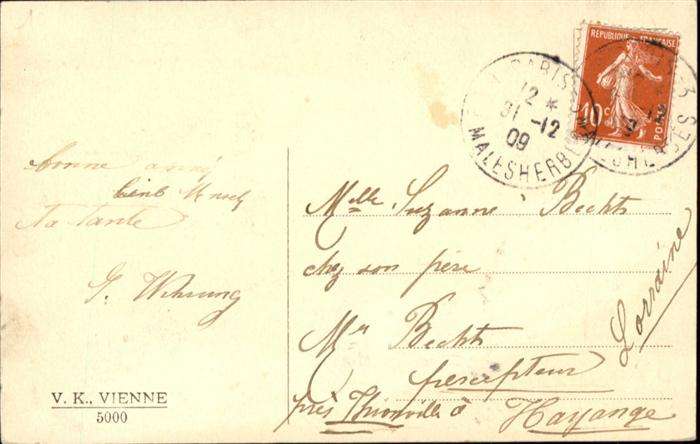 RÉPUBLIQUE FRANÇAISE
10c
POSTES
PARIS
12 *
31 -12
09
MALESHERBES
bonne année
ta tante
G. Wehrung
V. K., VIENNE
5000
Melle Suzanne Bechts
chez son père
Mr Bechts
percepteur
près Thionville à Hayange
Lorraine